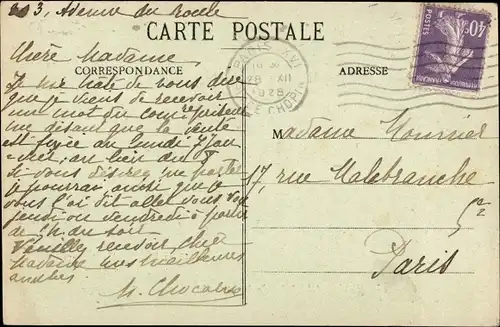 3, Avenue du
CARTE POSTALE
CORRESPONDANCE
ADRESSE
PARIS XVI
28 XII
1928
CHOPIN
POSTES
40c
Chère Madame
Je me hâte de vous dire
que je viens de recevoir
un mot du
me disant que la vente
est fixée au lundi 7 Jan-
vier, au lieu du
Si vous
je pourrai, ainsi que je
vous l'ai dit aller vous voir
jeudi ou vendredi à partir
de du soir
Veuillez recevoir Chère
Madame mes meilleures
amitiés
M.
Madame
17, rue Malebranche
5e
Paris